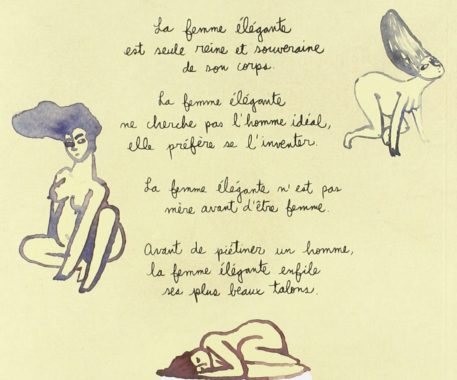 La femme élégante
est seule reine et souveraine
de son corps.
La femme élégante
ne cherche pas l'homme idéal,
elle préfère se l'inventer.
La femme élégante n'est pas
mère avant d'être femme.
Avant de piétiner un homme,
la femme élégante enfile
ses plus beaux talons.